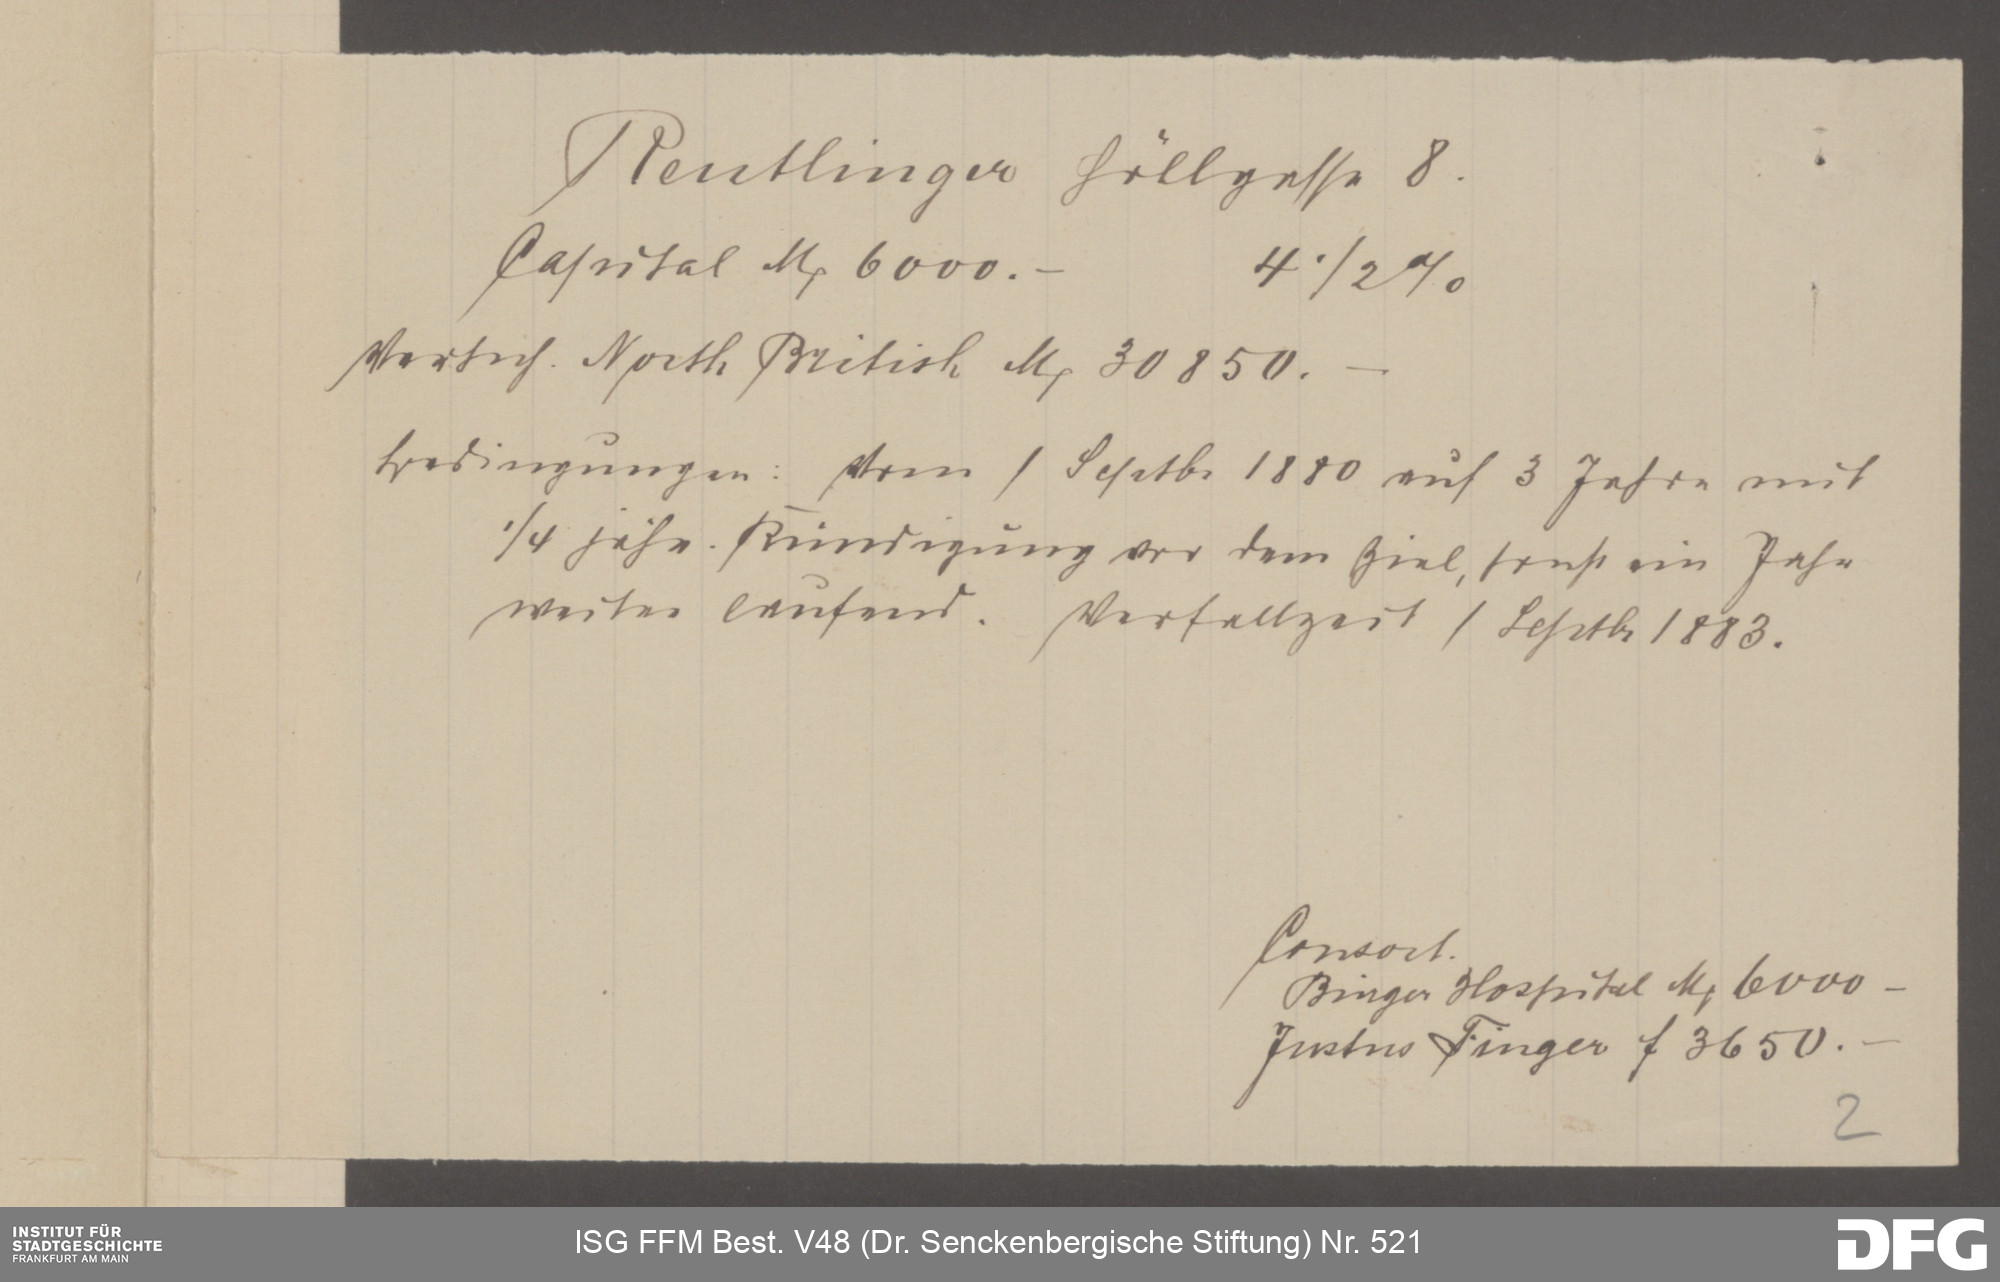 Reutlinger Höllgasse 8.
Capital M 6000.— 4 1/2 %
Versich. North British M 30850.—
Bedingungen: Vom 1 Septbr 1880 auf 3 Jahre mit
1/4 jähr. Kündigung vor dem Ziel, sonst ein Jahr
weiter laufend. Verfallzeit 1 Septbr 1883.
Consort.
Binger Hospital M 6000 —
Justus Finger f 3650.—
2
INSTITUT FÜR
STADTGESCHICHTE
FRANKFURT AM MAIN
ISG FFM Best. V48 (Dr. Senckenbergische Stiftung) Nr. 521
DFG